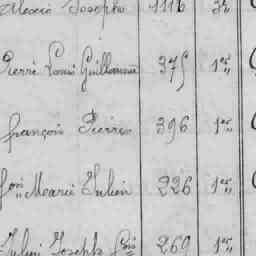 Marie Joseph 1116 3e „
Pierre Louis Guillaume 375 1er „
françois Pierre 396 1er „
fois Marie Julien 226 1er „
Julien Joseph fois 269 1er „